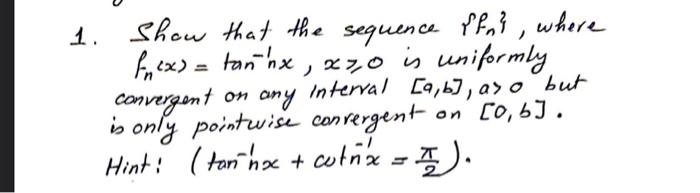 1. Show that the sequence {fn}, where
fn(x) = tan⁻¹nx, x ≥ 0 is uniformly
convergent on any interval [a,b], a>0 but
is only pointwise convergent on [0,b].
Hint: (tan⁻¹nx + cot⁻¹nx = π/2).